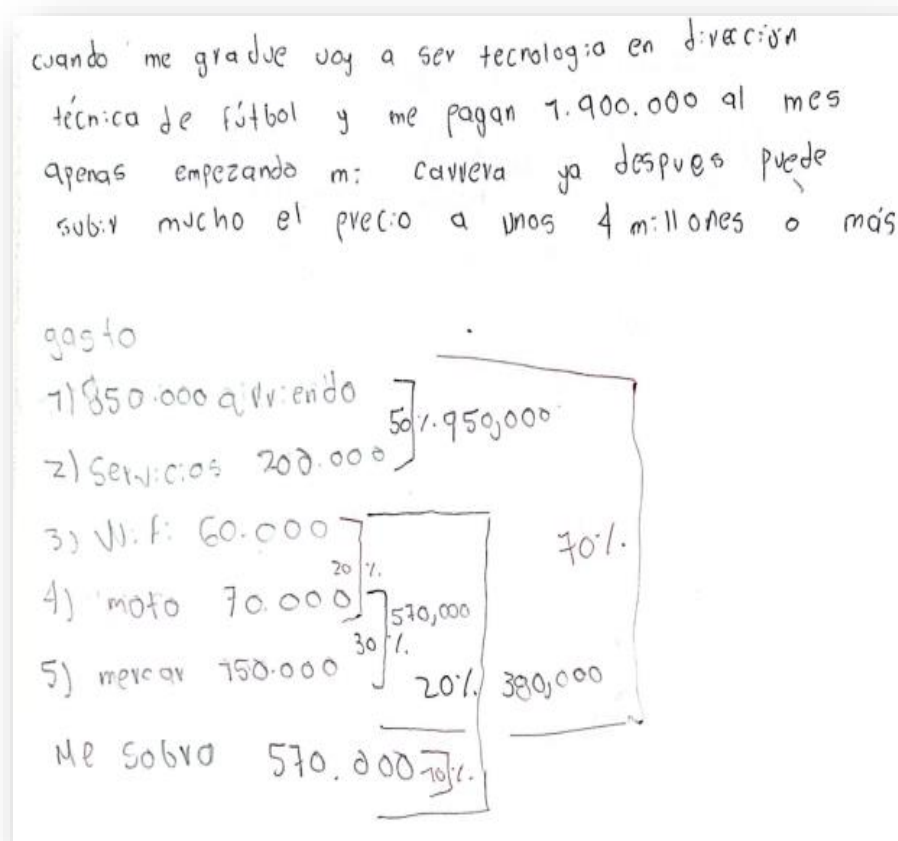 cuando me gradue voy a ser tecnologia en dirección
técnica de fútbol y me pagan 1.900.000 al mes
apenas empezando mi carrera ya despues puede
subir mucho el precio a unos 4 millones o más
gasto
1) 850.000 arriendo
50%. 950,000
2) Servicios 200.000
3) Wifi 60.000
20 %.
70%.
4) moto 70.000
570,000
30 %.
5) mercar 150.000
20%. 380,000
Me sobro 570.000 10%.